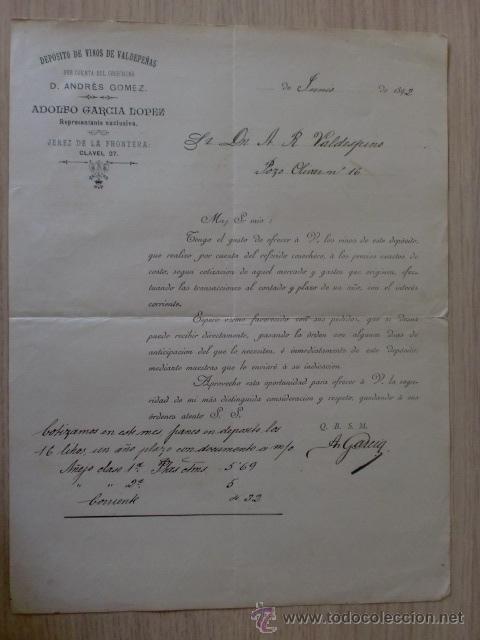 DEPÓSITO DE VINOS DE VALDEPEÑAS
POR CUENTA DEL COSECHERO
D. ANDRÉS GOMEZ.
ADOLFO GARCIA LOPEZ
Representante exclusivo.
JEREZ DE LA FRONTERA:
CLAVEL 27.
de Junio de 1892
Sr. Dn. A. R. Valdespino
Pozo Olivar nº 16
Muy Sr. mio:
Tengo el gusto de ofrecer á V. los vinos de este depósito,
que realizo, por cuenta del referido cosechero, á los precios exactos de
costo, segun cotizacion de aquel mercado y gastos que originen, efec-
tuando las transacciones al contado y plazo de un año, con el interés
corriente.
Espero verme favorecido con sus pedidos, que si desea
puede recibir directamente, pasando la órden con algunos dias de
anticipacion del que lo necesiten, ó inmediatamente de este depósito,
mediante muestras que le enviaré á su indicacion.
Aprovecho esta oportunidad para ofrecer á V. la segu-
ridad de mi más distinguida consideracion y respeto, quedando á sus
órdenes atento S. S.
Q. B. S. M.
A. Garcia
Cotizamos en este mes, franco en deposito los
16 litros, un año plazo con documento a m/o
Añejo clase 1ª Ptas ctms 5'69
" " 2ª 5
Corriente 4 32
todocoleccion
www.todocoleccion.net